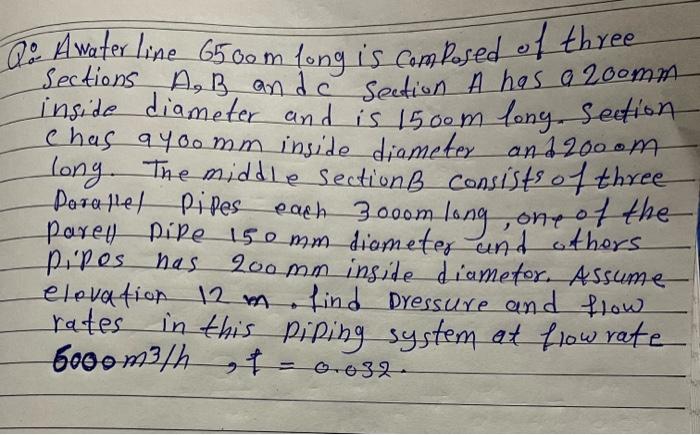 Q: A water line 6500m long is composed of three
Sections A, B and c Section A has a 200mm
inside diameter and is 1500m long. Section
c has a 400 mm inside diameter and 2000m
long. The middle section B consists of three
Parallel pipes each 3000m long, one of the
parell pipe 150 mm diameter and others
pipes has 200 mm inside diameter. Assume
elevation 12 m. find pressure and flow
rates in this piping system at flow rate
6000 m3/h , f = 0.032.